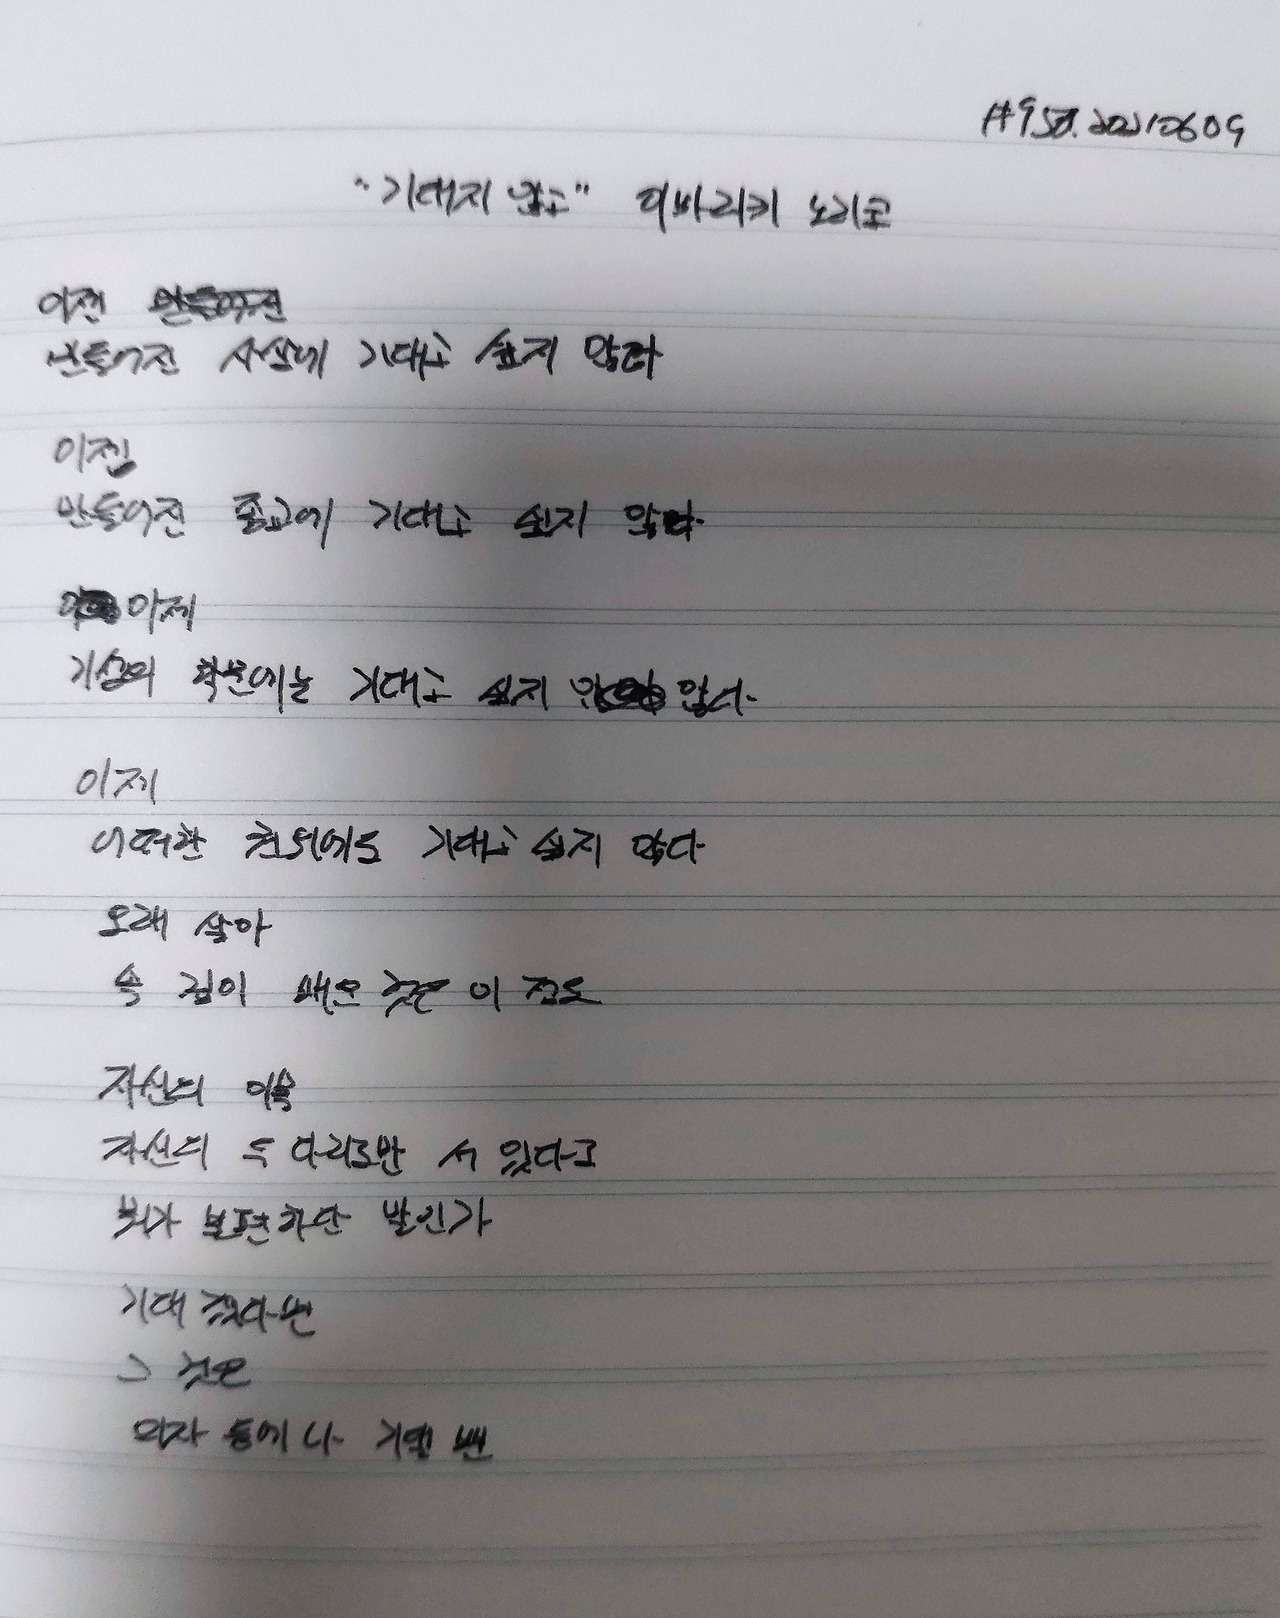 #950. 20210609
"기대지 않고" 이바라키 노리코
이젠
만들어진 사상에 기대고 싶지 않다
이젠
만들어진 종교에 기대고 싶지 않다
이제
기성의 학문에는 기대고 싶지 않다
이제
어떠한 권위에도 기대고 싶지 않다
오래 살아
속 깊이 배운 것은 이 정도
자신의 이목
자신의 두 다리로만 서 있다고
뭐가 불편하단 말인가
기대겠다면
그것은
의자 등에나 기댈 뿐